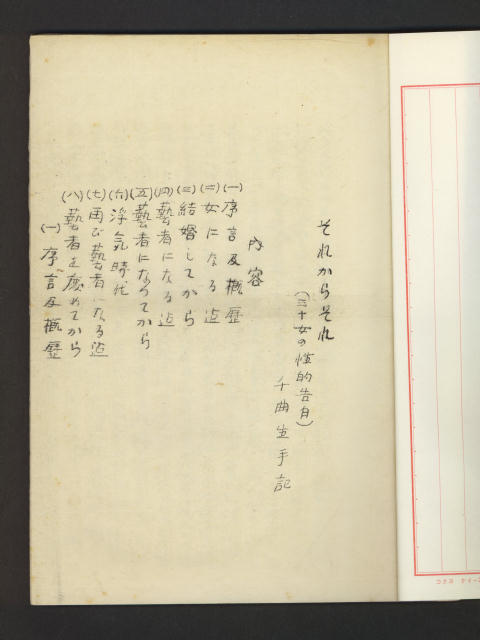 それからそれ
(三十女の性的告白)
千曲生手記
内容
(一)序言及概歴
(二)女になる迄
(三)結婚してから
(四)藝者になる迄
(五)藝者になつてから
(六)浮気時代
(七)再び藝者になる迄
(八)藝者を廢めてから
(一)序言及概歴